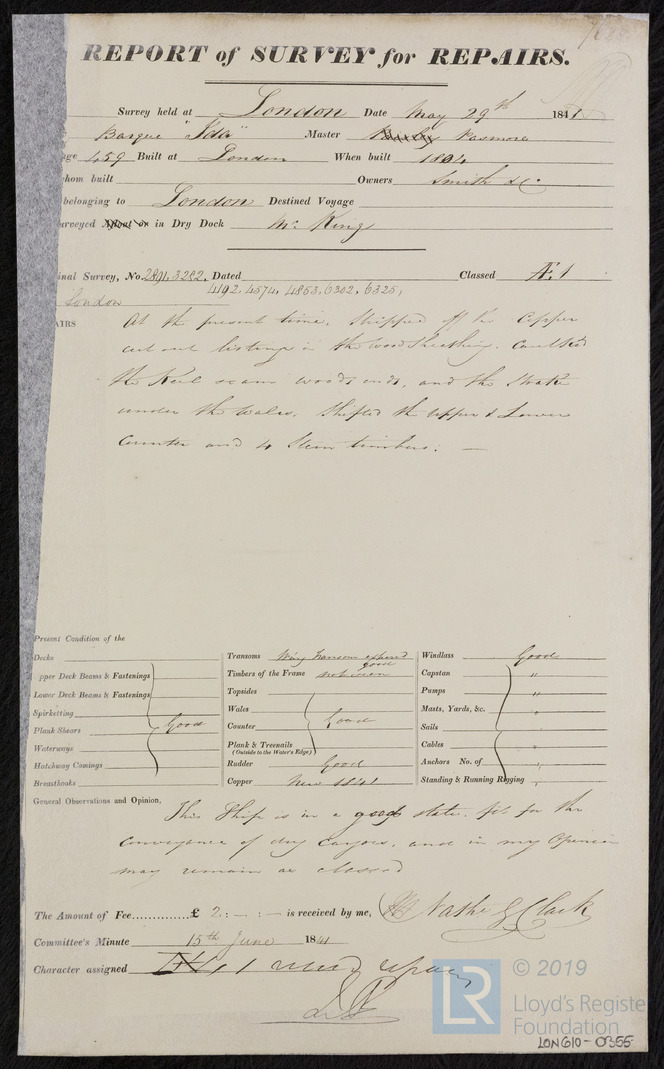 REPORT of SURVEY for REPAIRS.
Survey held at London Date May 29th 1841
Barque "Ida" Master Pasmore
459 Built at London When built
hom built Owners Smith &c.
belonging to London Destined Voyage
urveyed Afloat or in Dry Dock Mr. King
inal Survey, No. 2891, 3282, Dated Classed Æ. 1
4192, 4574, 4853, 6302, 6325,
London
AIRS At the present time. Stripped off the Copper
cut out listings in the wood sheathing. Caulked
the Keel seams woods ends, and the strake
under the wales. Shifted the upper & Lower
Counter and 4 Stern timbers. —
Present Condition of the
Decks
pper Deck Beams & Fastenings
Lower Deck Beams & Fastenings
Spirketting
Plank Shears Good
Waterways
Hatchway Comings
Breasthooks
Transoms Wing transom exposed good
Timbers of the Frame not seen
Topsides
Wales
Counter Good
Plank & Treenails
(Outside to the Water's Edge)
Rudder Good
Copper New 1841
Windlass Good
Capstan "
Pumps "
Masts, Yards, &c. "
Sails
Cables "
Anchors No. of "
Standing & Running Rigging "
General Observations and Opinion,
This Ship is in a good state, fit for the
conveyance of dry cargoes, and in my Opinion
may remain as classed
The Amount of Fee £ 2 : — : — is received by me, Clark
Committee's Minute 15th June 1841
Character assigned Æ 1
© 2019
LR
Lloyd's Registe
Foundation
LON610-0355